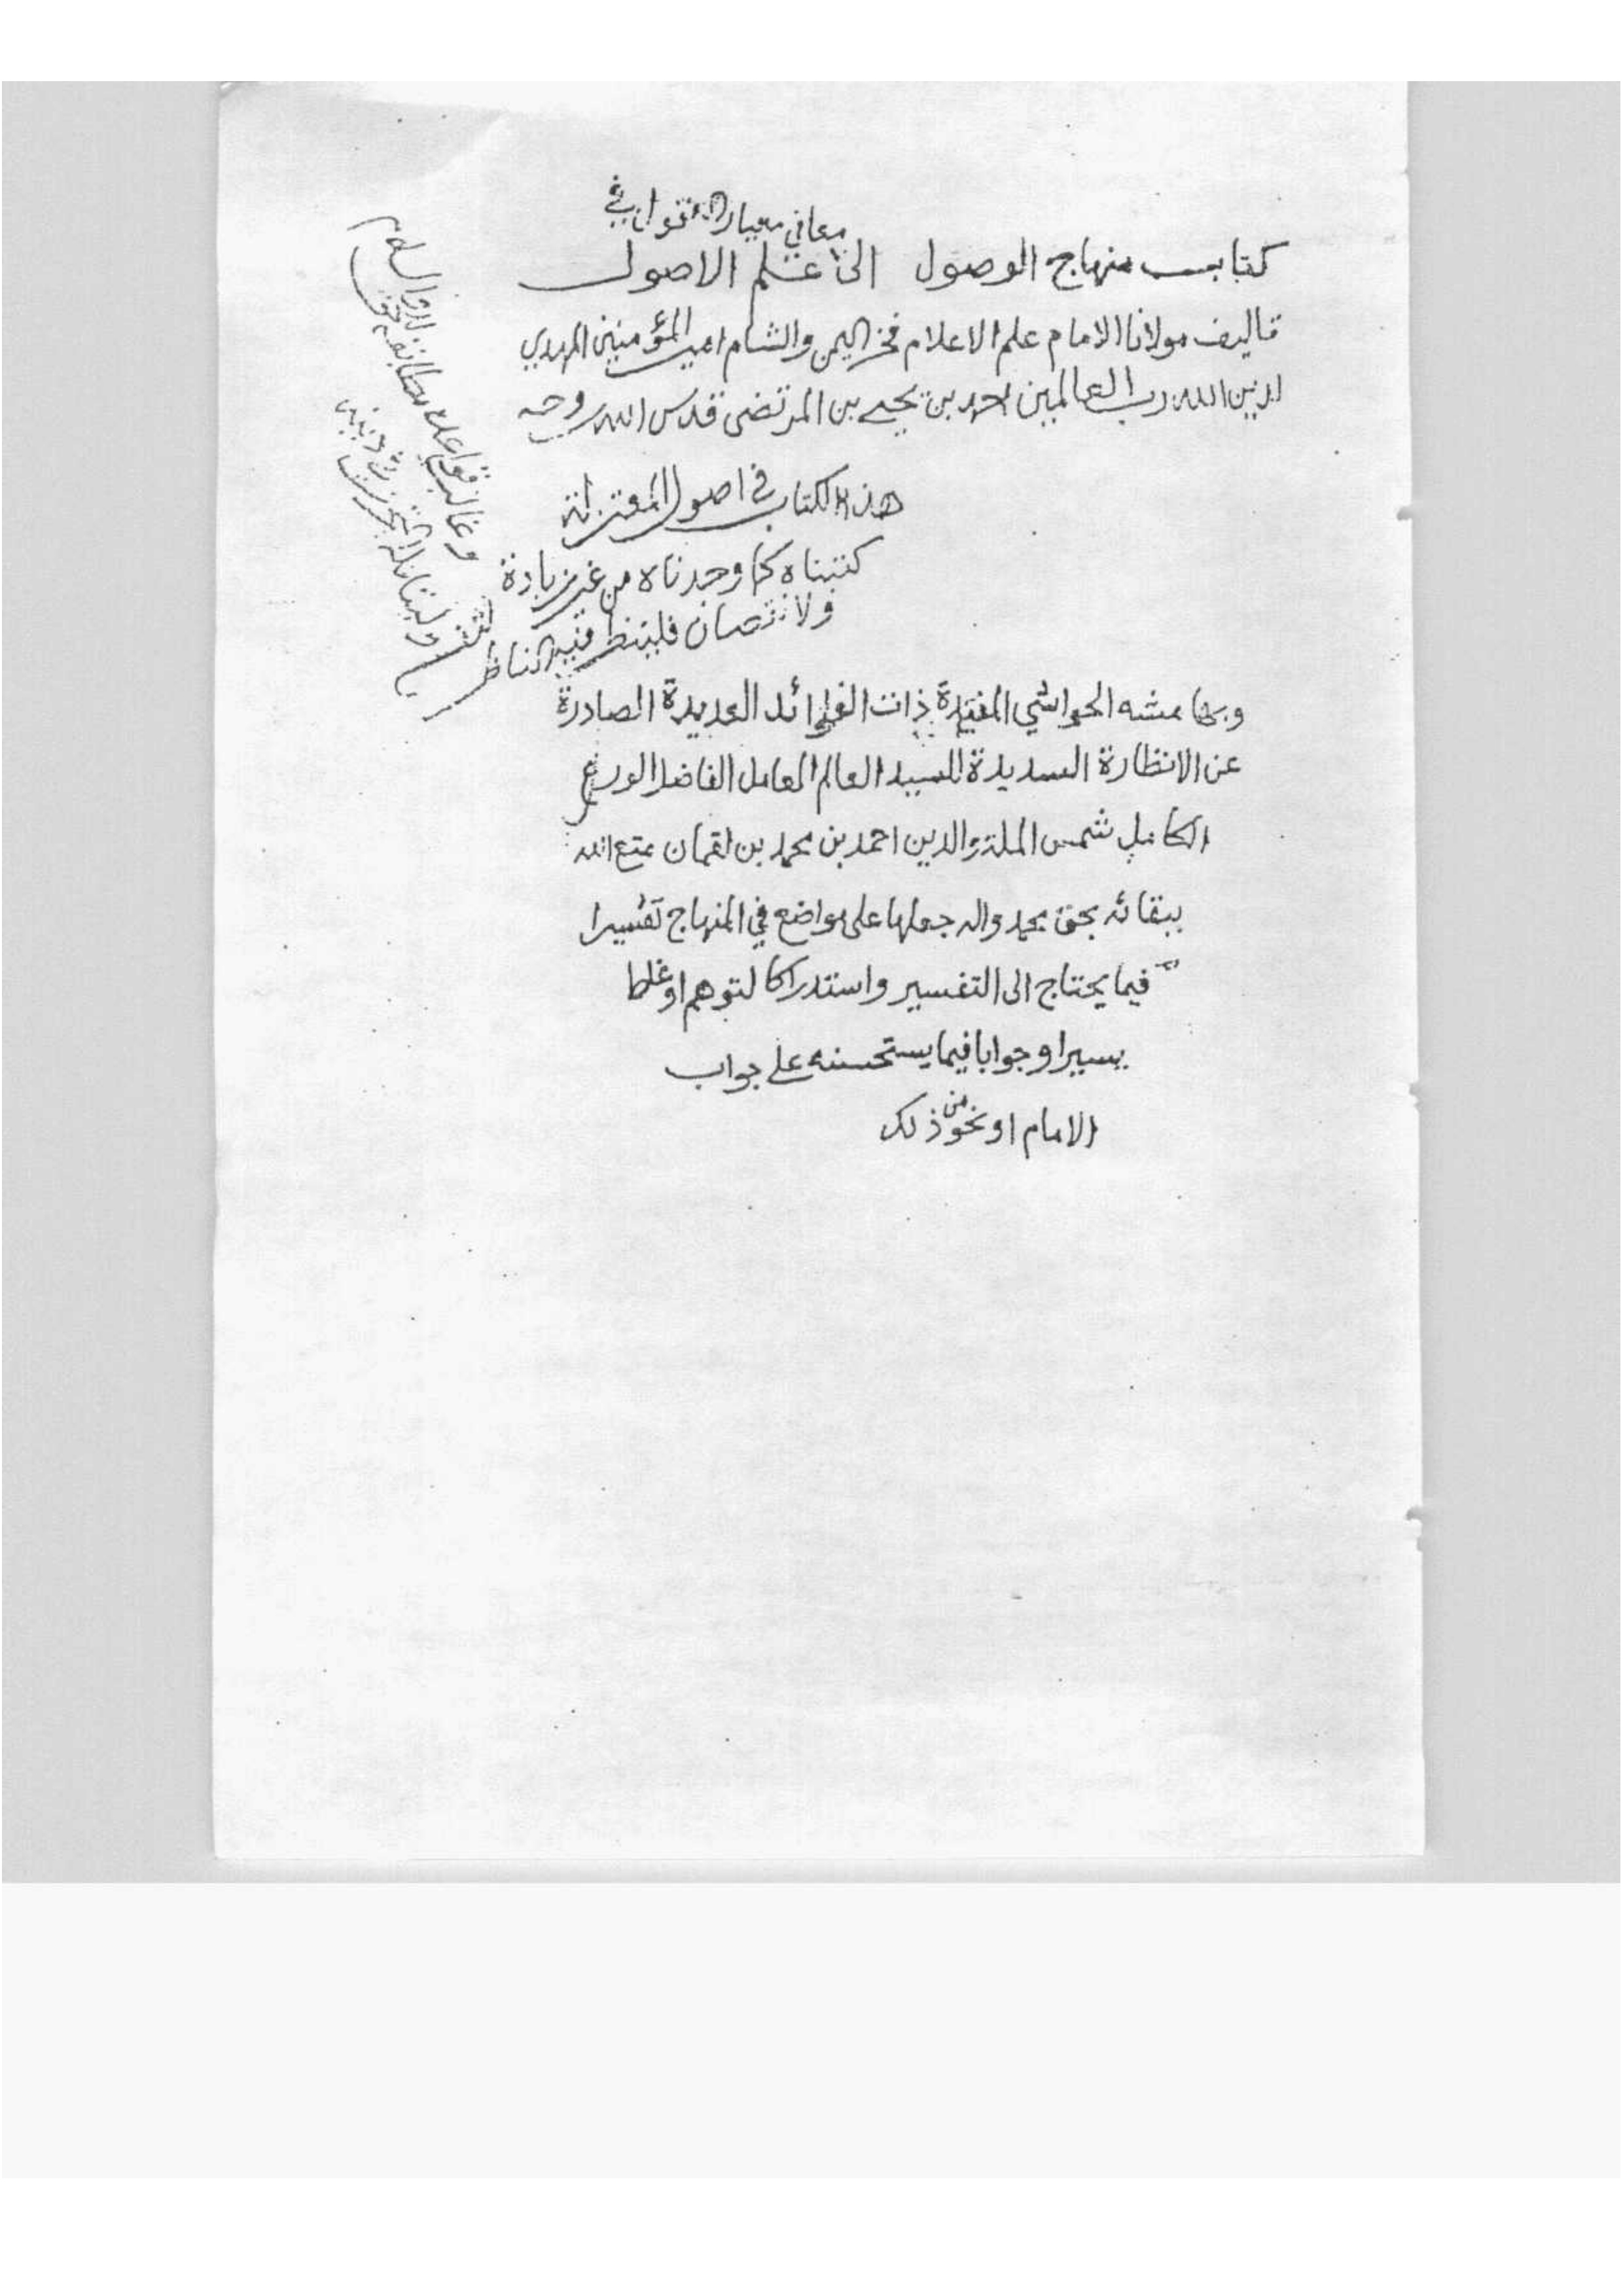 معاني معيار العقول في
كتاب منهاج الوصول الى علم الاصول
تاليف مولانا الامام علم الاعلام فخر اليمن والشام امير المؤمنين المهدي
لدين الله رب العالمين احمد بن يحيى بن المرتضى قدس الله روحه
هذا الكتاب في اصول المعتزلة
كتبناه كما وجدناه من غير زيادة
ولا نقصان فلينظر فيه الناظر
وغالب قواعده مطابقة
وبهامشه الحواشي المفيدة ذات الفوائد العديدة الصادرة
عن الانظارة السديدة للسيد العالم العامل الفاضل الورع
الكامل شمس الملة والدين احمد بن محمد بن لقمان متع الله
ببقائه بحق محمد واله جعلها على مواضع في المنهاج تفسيرا
فيما يحتاج الى التفسير واستدراكا لتوهم او غلط
يسير او جوابا فيما يستحسنه على جواب
الامام او نحو من ذلك